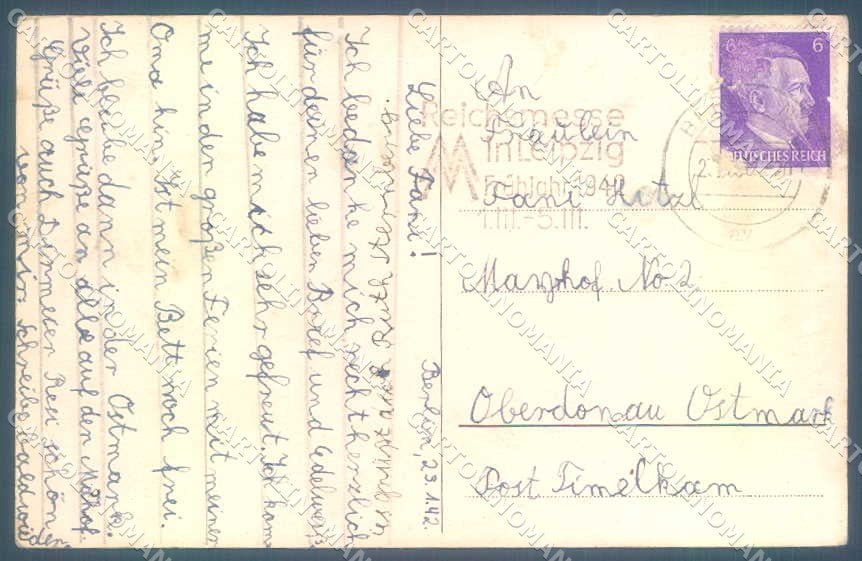 Berlin, 23.1.42.
Liebe Fani!
Ich bedanke mich recht herzlich
für deinen lieben Brief und Edelweiß.
Ich habe mich sehr gefreut. Ich komme
in den großen Ferien mit meiner
Oma hin. Ist mein Bett noch frei.
Ich bleibe dann in der Ostmark.
Viele Grüße an alle auf den
Grüße auch Resi schön
von mir Schreibe bald wieder
Es grüßt euch Ruth
An
Fräulein
Fani
No 2
Oberdonau Ostmark
Post Timelkam
Reichsmesse
in Leipzig
Frühjahr 1942
1.III.-5.III.
6 6
DEUTSCHES REICH
CARTOLINOMANIA